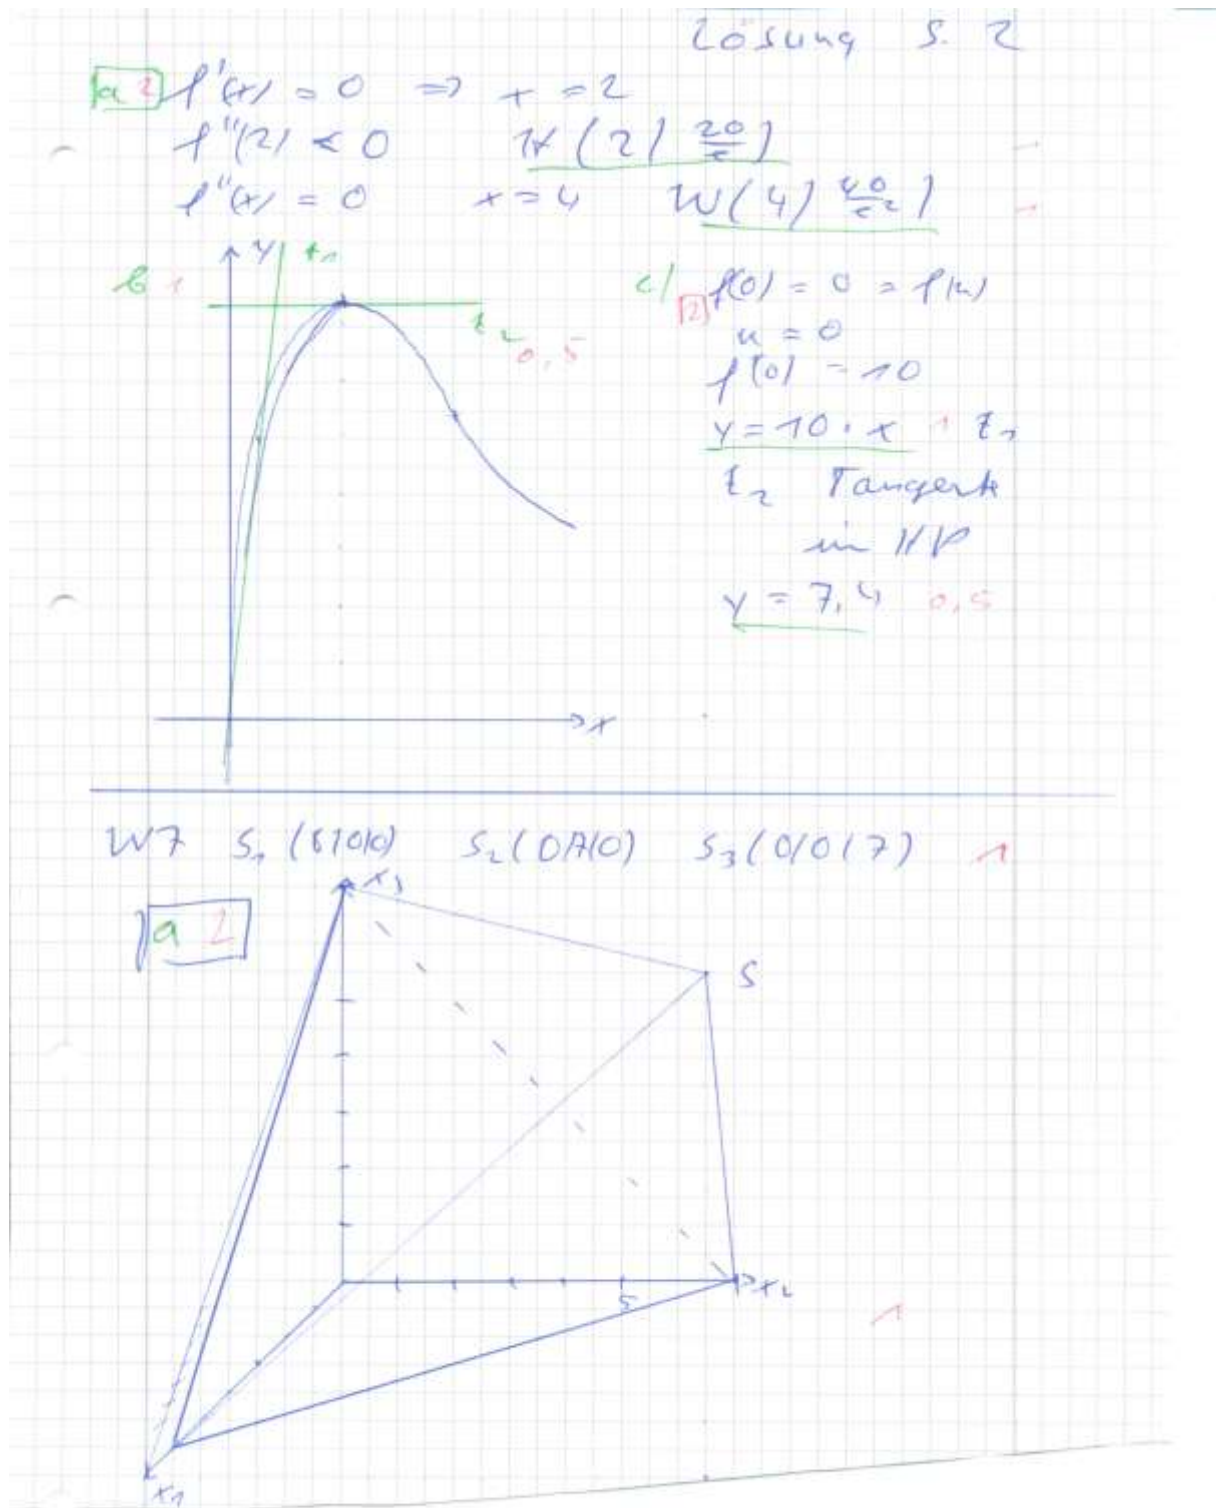 Lösung S. 2
a 2 f'(x) = 0 => x = 2
f''(2) < 0 H (2 | 20/e)
f''(x) = 0 x = 4 W (4 | 40/e²) 1
b 1
y t₁
t₂ 0,5
x
c/ 2 f(0) = 0 = f(u)
u = 0
f'(0) = 10
y = 10 · x 1 t₁
t₂ Tangente
im HP
y = 7,4 0,5
W7 S₁ (6|0|0) S₂ (0|7|0) S₃ (0|0|7) 1
a 2
x₃
S
5 x₂
1
x₁